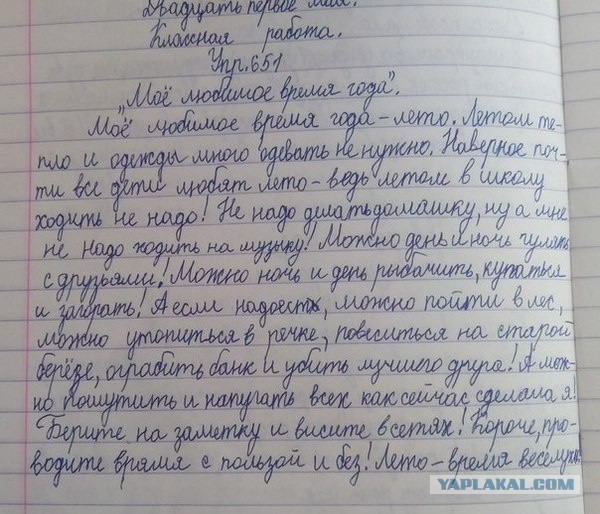 Двадцать первое мая.
Классная работа.
Упр. 651
„Моё любимое время года".
Моё любимое время года – лето. Летом те-
пло и одежды много одевать не нужно. Наверное поч-
ти все дети любят лето – ведь летом в школу
ходить не надо! Не надо делать домашку, ну а мне
не надо ходить на музыку! Можно день и ночь гулять
с друзьями! Можно ночь и день рыбачить, купаться
и загорать! А если надоесть, можно пойти в лес,
можно утопиться в речке, повеситься на старой
берёзе, ограбить банк и убить лучшего друга! А мож-
но пошутить и напугать всех как сейчас сделала я!
Берите на заметку и висите в сетях! Короче, про-
водите время с пользой и без! Лето – время веселухи!
YAPLAKAL.COM